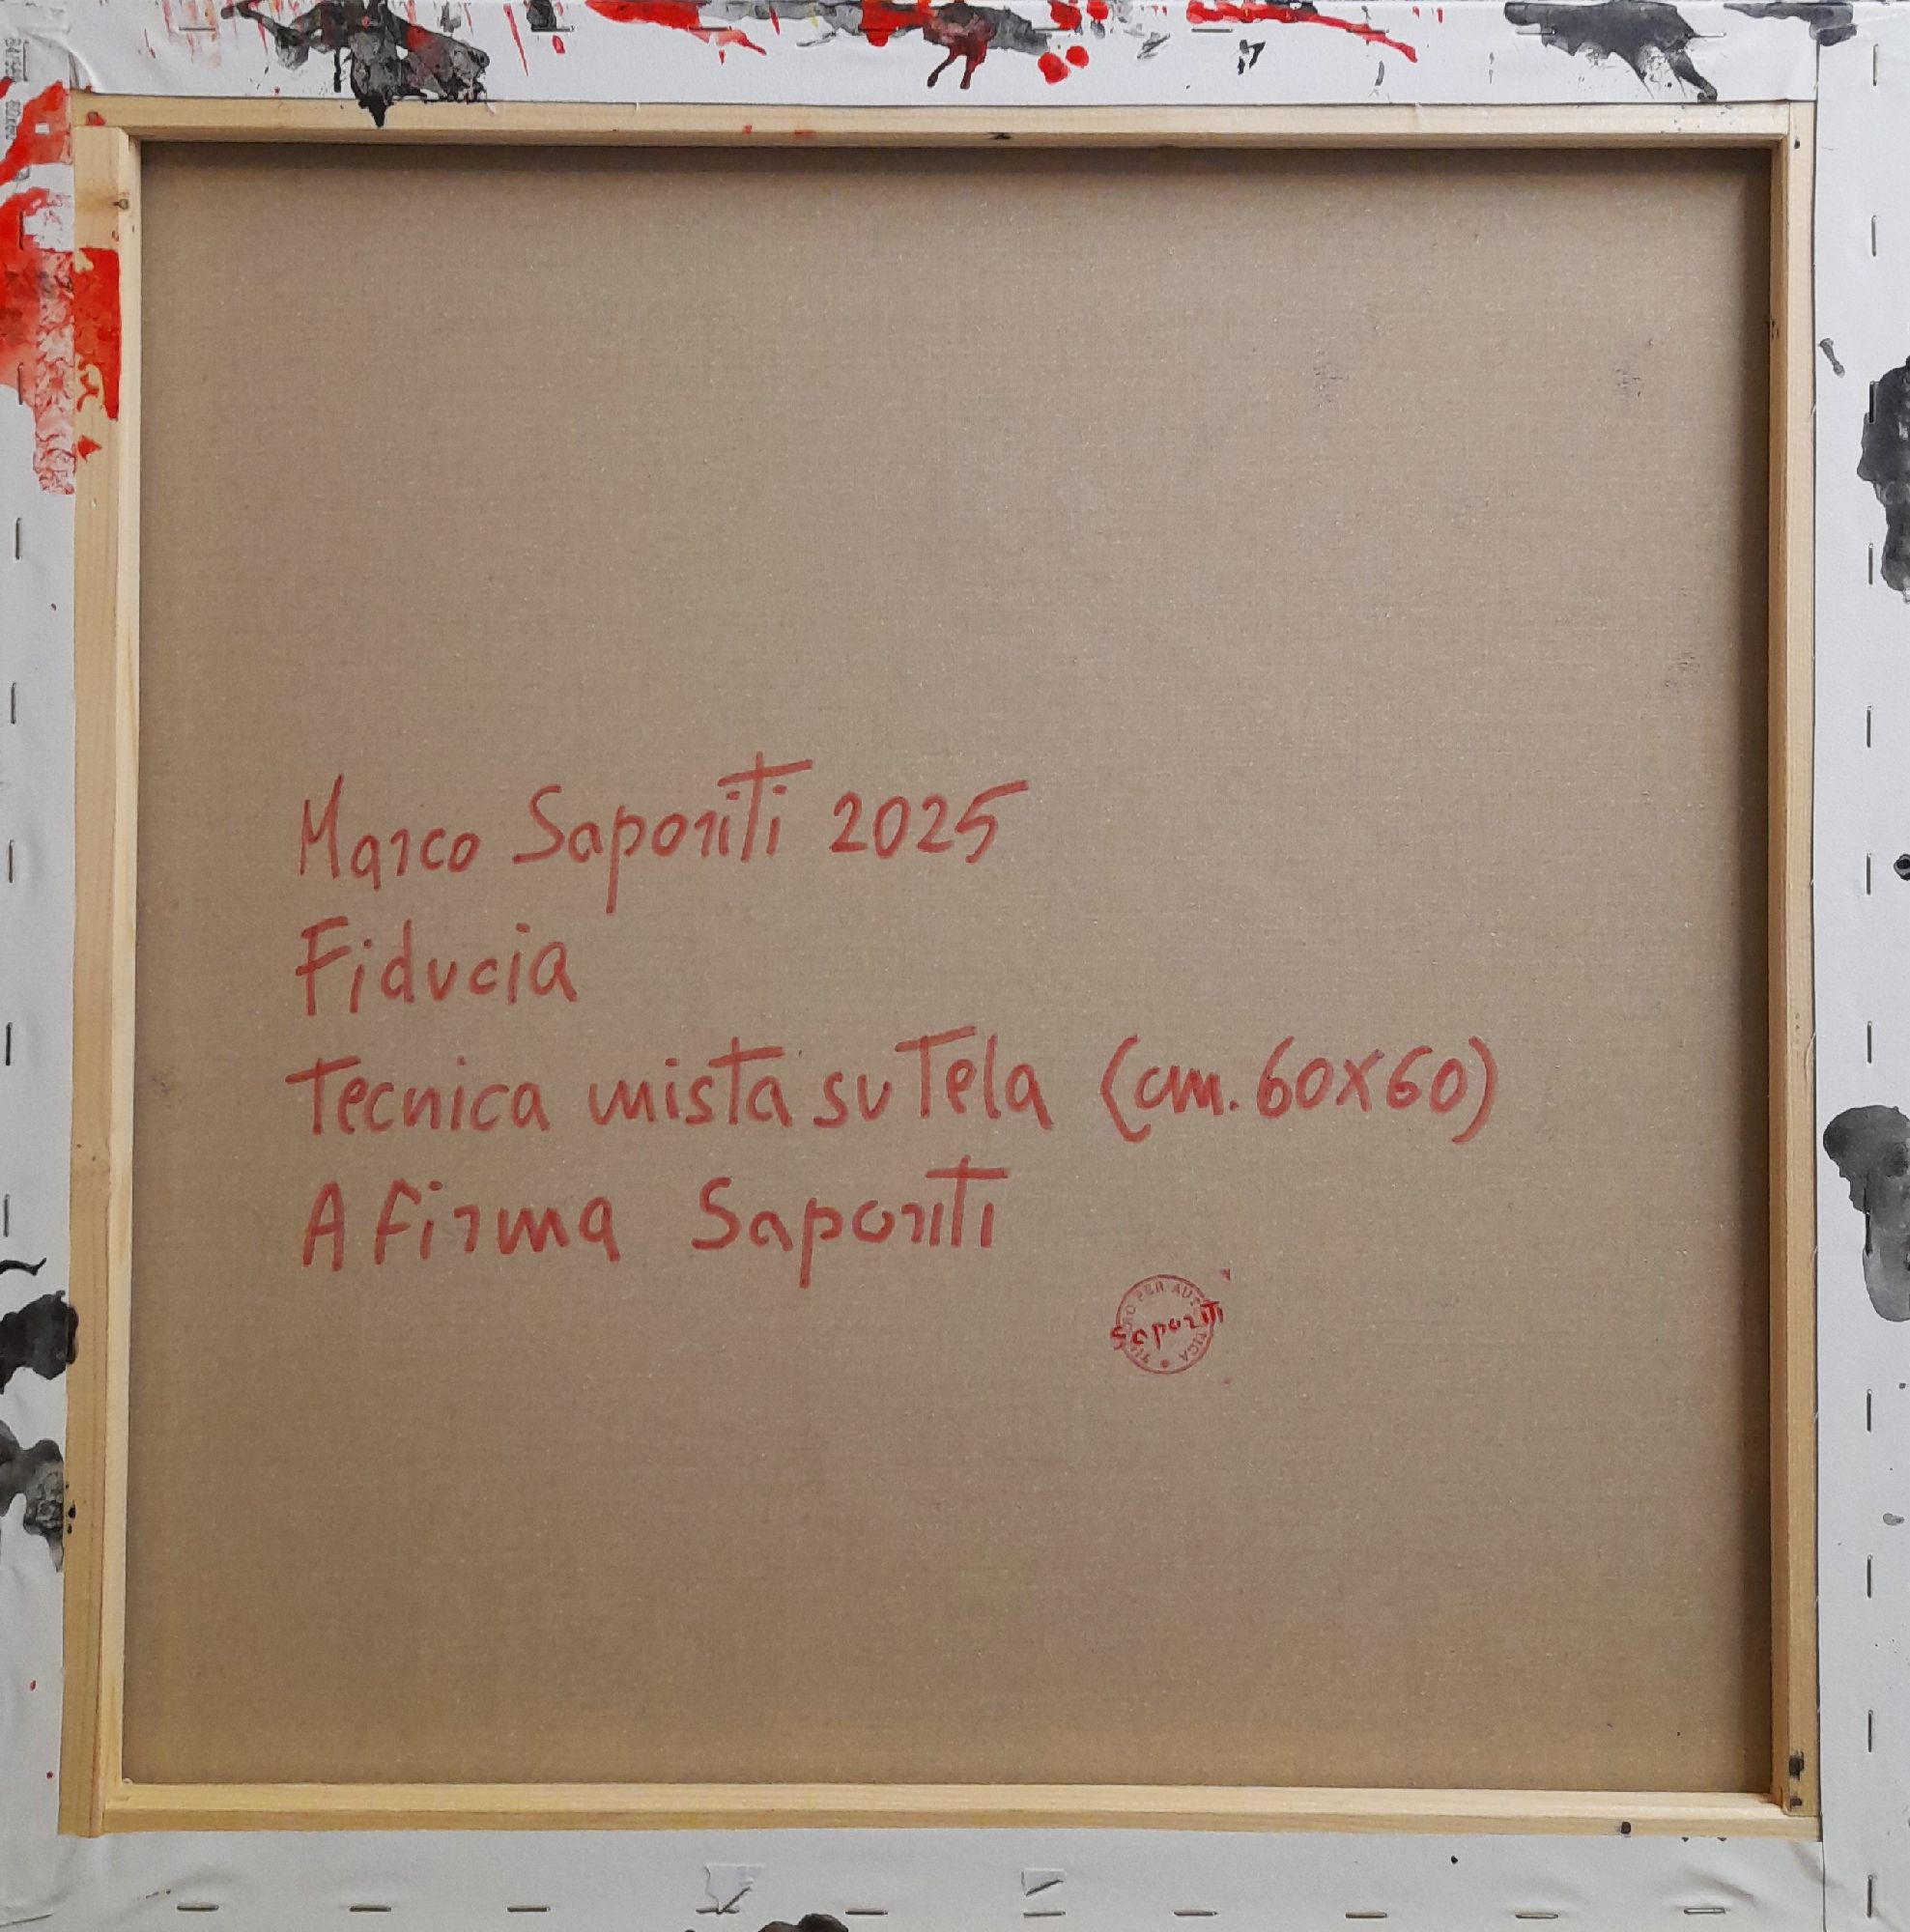 Marco Saporiti 2025
Fiducia
Tecnica mista su Tela (cm. 60x60)
A firma Saporiti
Saporiti